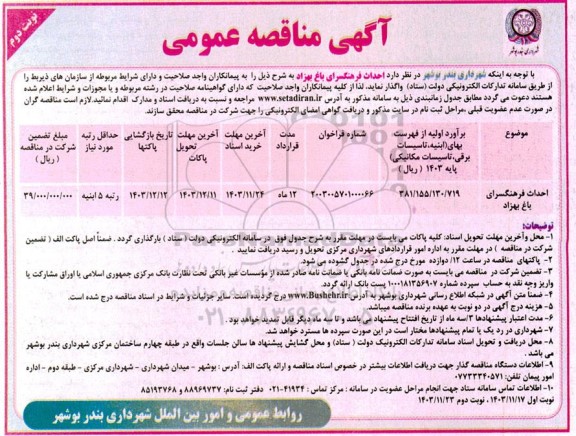 نوبت دوم
شهرداری بندر بوشهر
آگهی مناقصه عمومی
با توجه به اینکه شهرداری بندر بوشهر در نظر دارد احداث فرهنگسرای باغ بهزاد به شرح ذیل را به پیمانکاران واجد صلاحیت و دارای شرایط مربوطه از سازمان های ذیربط را
از طریق سامانه تدارکات الکترونیکی دولت (ستاد) واگذار نماید. لذا از کلیه پیمانکاران واجد صلاحیت که دارای گواهینامه صلاحیت در رشته مربوطه و یا مجوزات و شرایط اعلام شده
هستند دعوت می گردد مطابق جدول زمانبندی ذیل به سامانه مذکور به آدرس www.setadiran.ir مراجعه و نسبت به دریافت اسناد و مدارک اقدام نمائید. لازم است مناقصه گران
در صورت عدم عضویت قبلی، مراحل ثبت نام در سایت مذکور و دریافت گواهی امضای الکترونیکی را جهت شرکت در مناقصه محقق سازند.
موضوع | برآورد اولیه از فهرست بهای (ابنیه، تاسیسات برقی، تاسیسات مکانیکی) پایه ۱۴۰۳ (ریال) | شماره فراخوان | مدت قرارداد | آخرین مهلت خرید اسناد | آخرین مهلت تحویل پاکات | تاریخ بازگشایی پاکتها | حداقل رتبه مورد نیاز | مبلغ تضمین شرکت در مناقصه (ریال)
احداث فرهنگسرای باغ بهزاد | ۳۸۱/۱۵۵/۱۳۰/۷۱۹ | ۲۰۰۳۰۰۵۷۰۱۰۰۰۰۶۶ | ۱۲ ماه | ۱۴۰۳/۱۱/۲۴ | ۱۴۰۳/۱۲/۱۱ | ۱۴۰۳/۱۲/۱۲ | رتبه ۵ ابنیه | ۳۹/۰۰۰/۰۰۰/۰۰۰
توضیحات:
۱- محل و آخرین مهلت تحویل اسناد: کلیه پاکات می بایست در مهلت مقرر به شرح جدول فوق در سامانه الکترونیکی دولت (ستاد) بارگذاری گردد. ضمناً اصل پاکت الف (تضمین
شرکت در مناقصه) در مهلت مقرر به اداره امور قراردادهای شهرداری مرکزی تحویل و رسید دریافت نمایید.
۲- پاکتهای مناقصه در ساعت ۱۲/ دوازده مورخ درج شده در جدول گشوده می شود.
۳- تضمین شرکت در مناقصه می بایست به صورت ضمانت نامه بانکی یا ضمانت نامه صادر شده از مؤسسات غیر بانکی تحت نظارت بانک مرکزی جمهوری اسلامی یا اوراق مشارکت یا
واریز وجه نقد به حساب سپرده شماره ۱۰۰۰۱۸۱۳۵۶۹۰۷ پست بانک ارائه گردد.
۴- ضمناً متن آگهی در شبکه اطلاع رسانی شهرداری بوشهر به آدرس www.Bushehr.ir درج گردیده است. سایر جزئیات و شرایط در اسناد مناقصه درج شده است.
۵- هزینه درج آگهی در دو نوبت به عهده برنده مناقصه میباشد.
۶- مدت اعتبار پیشنهادها ۳/سه ماه از تاریخ افتتاح پیشنهاد می باشد و تا سه ماه دیگر قابل تمدید خواهد بود.
۷- شهرداری در رد یک یا تمام پیشنهادها مختار است در این صورت سپرده ها مسترد خواهد شد.
۸- محل دریافت و تحویل اسناد سامانه تدارکات الکترونیک دولت (ستاد) و محل گشایش پیشنهاد ها سالن جلسات واقع در طبقه چهارم ساختمان مرکزی شهرداری بندر بوشهر
می باشد.
۹- اطلاعات دستگاه مناقصه گذار جهت دریافت اطلاعات بیشتر در خصوص اسناد مناقصه و ارائه پاکت الف: آدرس: بوشهر - میدان شهرداری - شهرداری مرکزی - طبقه دوم - اداره
امور پیمان تلفن: ۰۷۷۳۳۳۴۰۵۷۱
۱۰- اطلاعات تماس سامانه ستاد جهت انجام مراحل عضویت در سامانه: مرکز تماس: ۴۱۹۳۴-۰۲۱ دفتر ثبت نام: ۸۸۹۶۹۷۳۷ و ۸۵۱۹۳۷۶۸
نوبت اول ۱۴۰۳/۱۱/۱۷، نوبت دوم ۱۴۰۳/۱۱/۲۳
روابط عمومی و امور بین الملل شهرداری بندر بوشهر